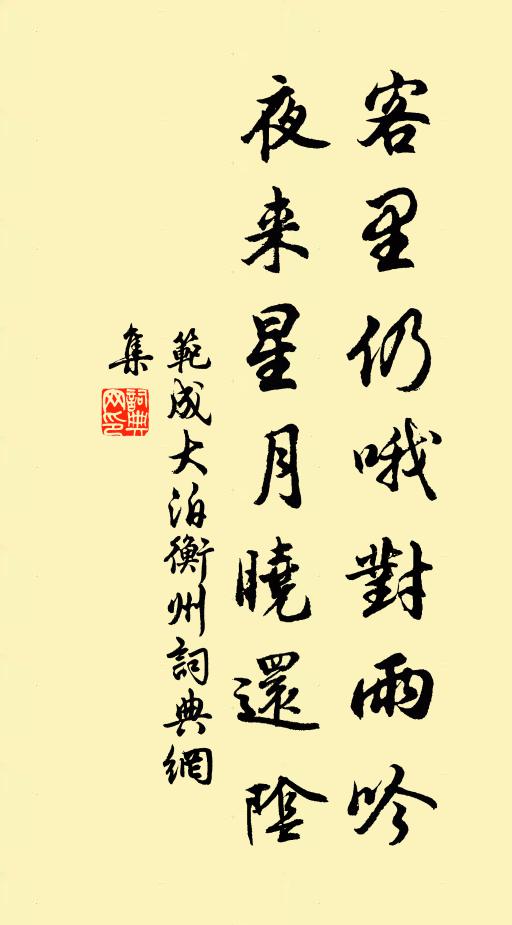 客里仍哦對雨吟
夜来星月曉還陰
範成大泊衡州詞典網
集
詞典
网印